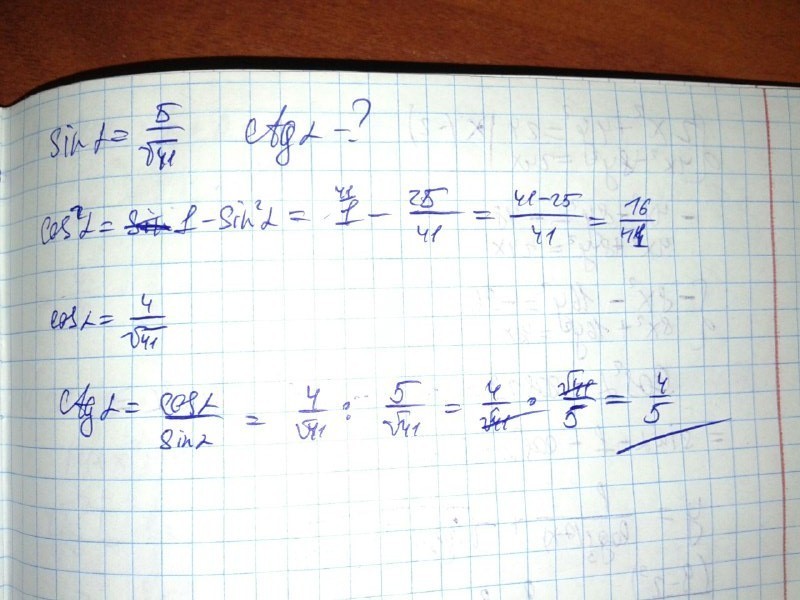 sin α = 5/√41 ctg α - ?
cos² α = 1 - sin² α = 1 - 25/41 = (41-25)/41 = 16/41
cos α = 4/√41
ctg α = cos α/sin α = 4/√41 : 5/√41 = 4/√41 · √41/5 = 4/5